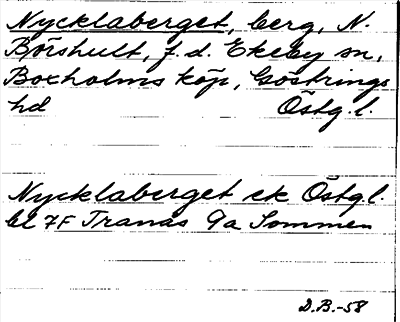 Nycklaberget, berg, N.
Börshult, f.d. Ekeby sn,
Boxholms köp, Göstrings
hd Östg.l.
Nycklaberget ek Östgl.
bl 7F Tranås 9a Sommen
D.B.-58